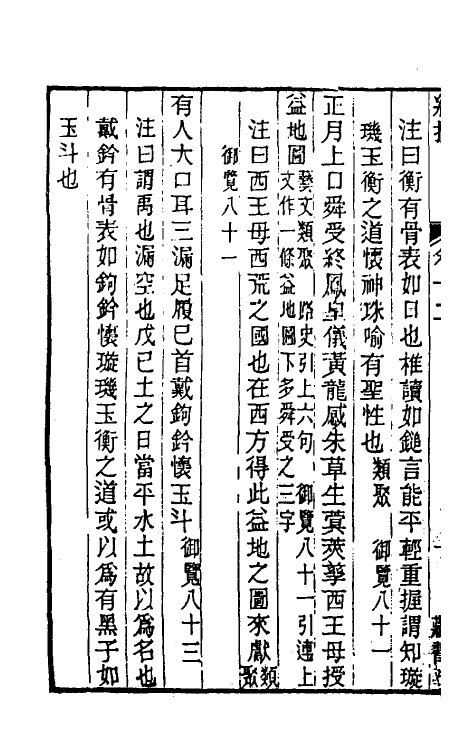 注曰衡有骨表如日也椎讀如鎚言能平輕重握謂知璇
璣玉衡之道懷神珠喻有聖性也類聚 御覽八十一
正月上日舜受終鳳皇儀黃龍感朱草生蓂莢孳西王母授
益地圖藝文類聚 路史引上六句 御覽八十一引連上
文作一條益地圖下多舜受之三字
注曰西王母西荒之國也在西方得此益地之圖來獻類聚
御覽八十一
有人大口耳三漏足履己首戴鉤鈐懷玉斗御覽八十三
注曰謂禹也漏空也戊己土之日當平水土故以爲名也
戴鈐有骨表如鉤鈐懷璇璣玉衡之道或以爲有黑子如
玉斗也